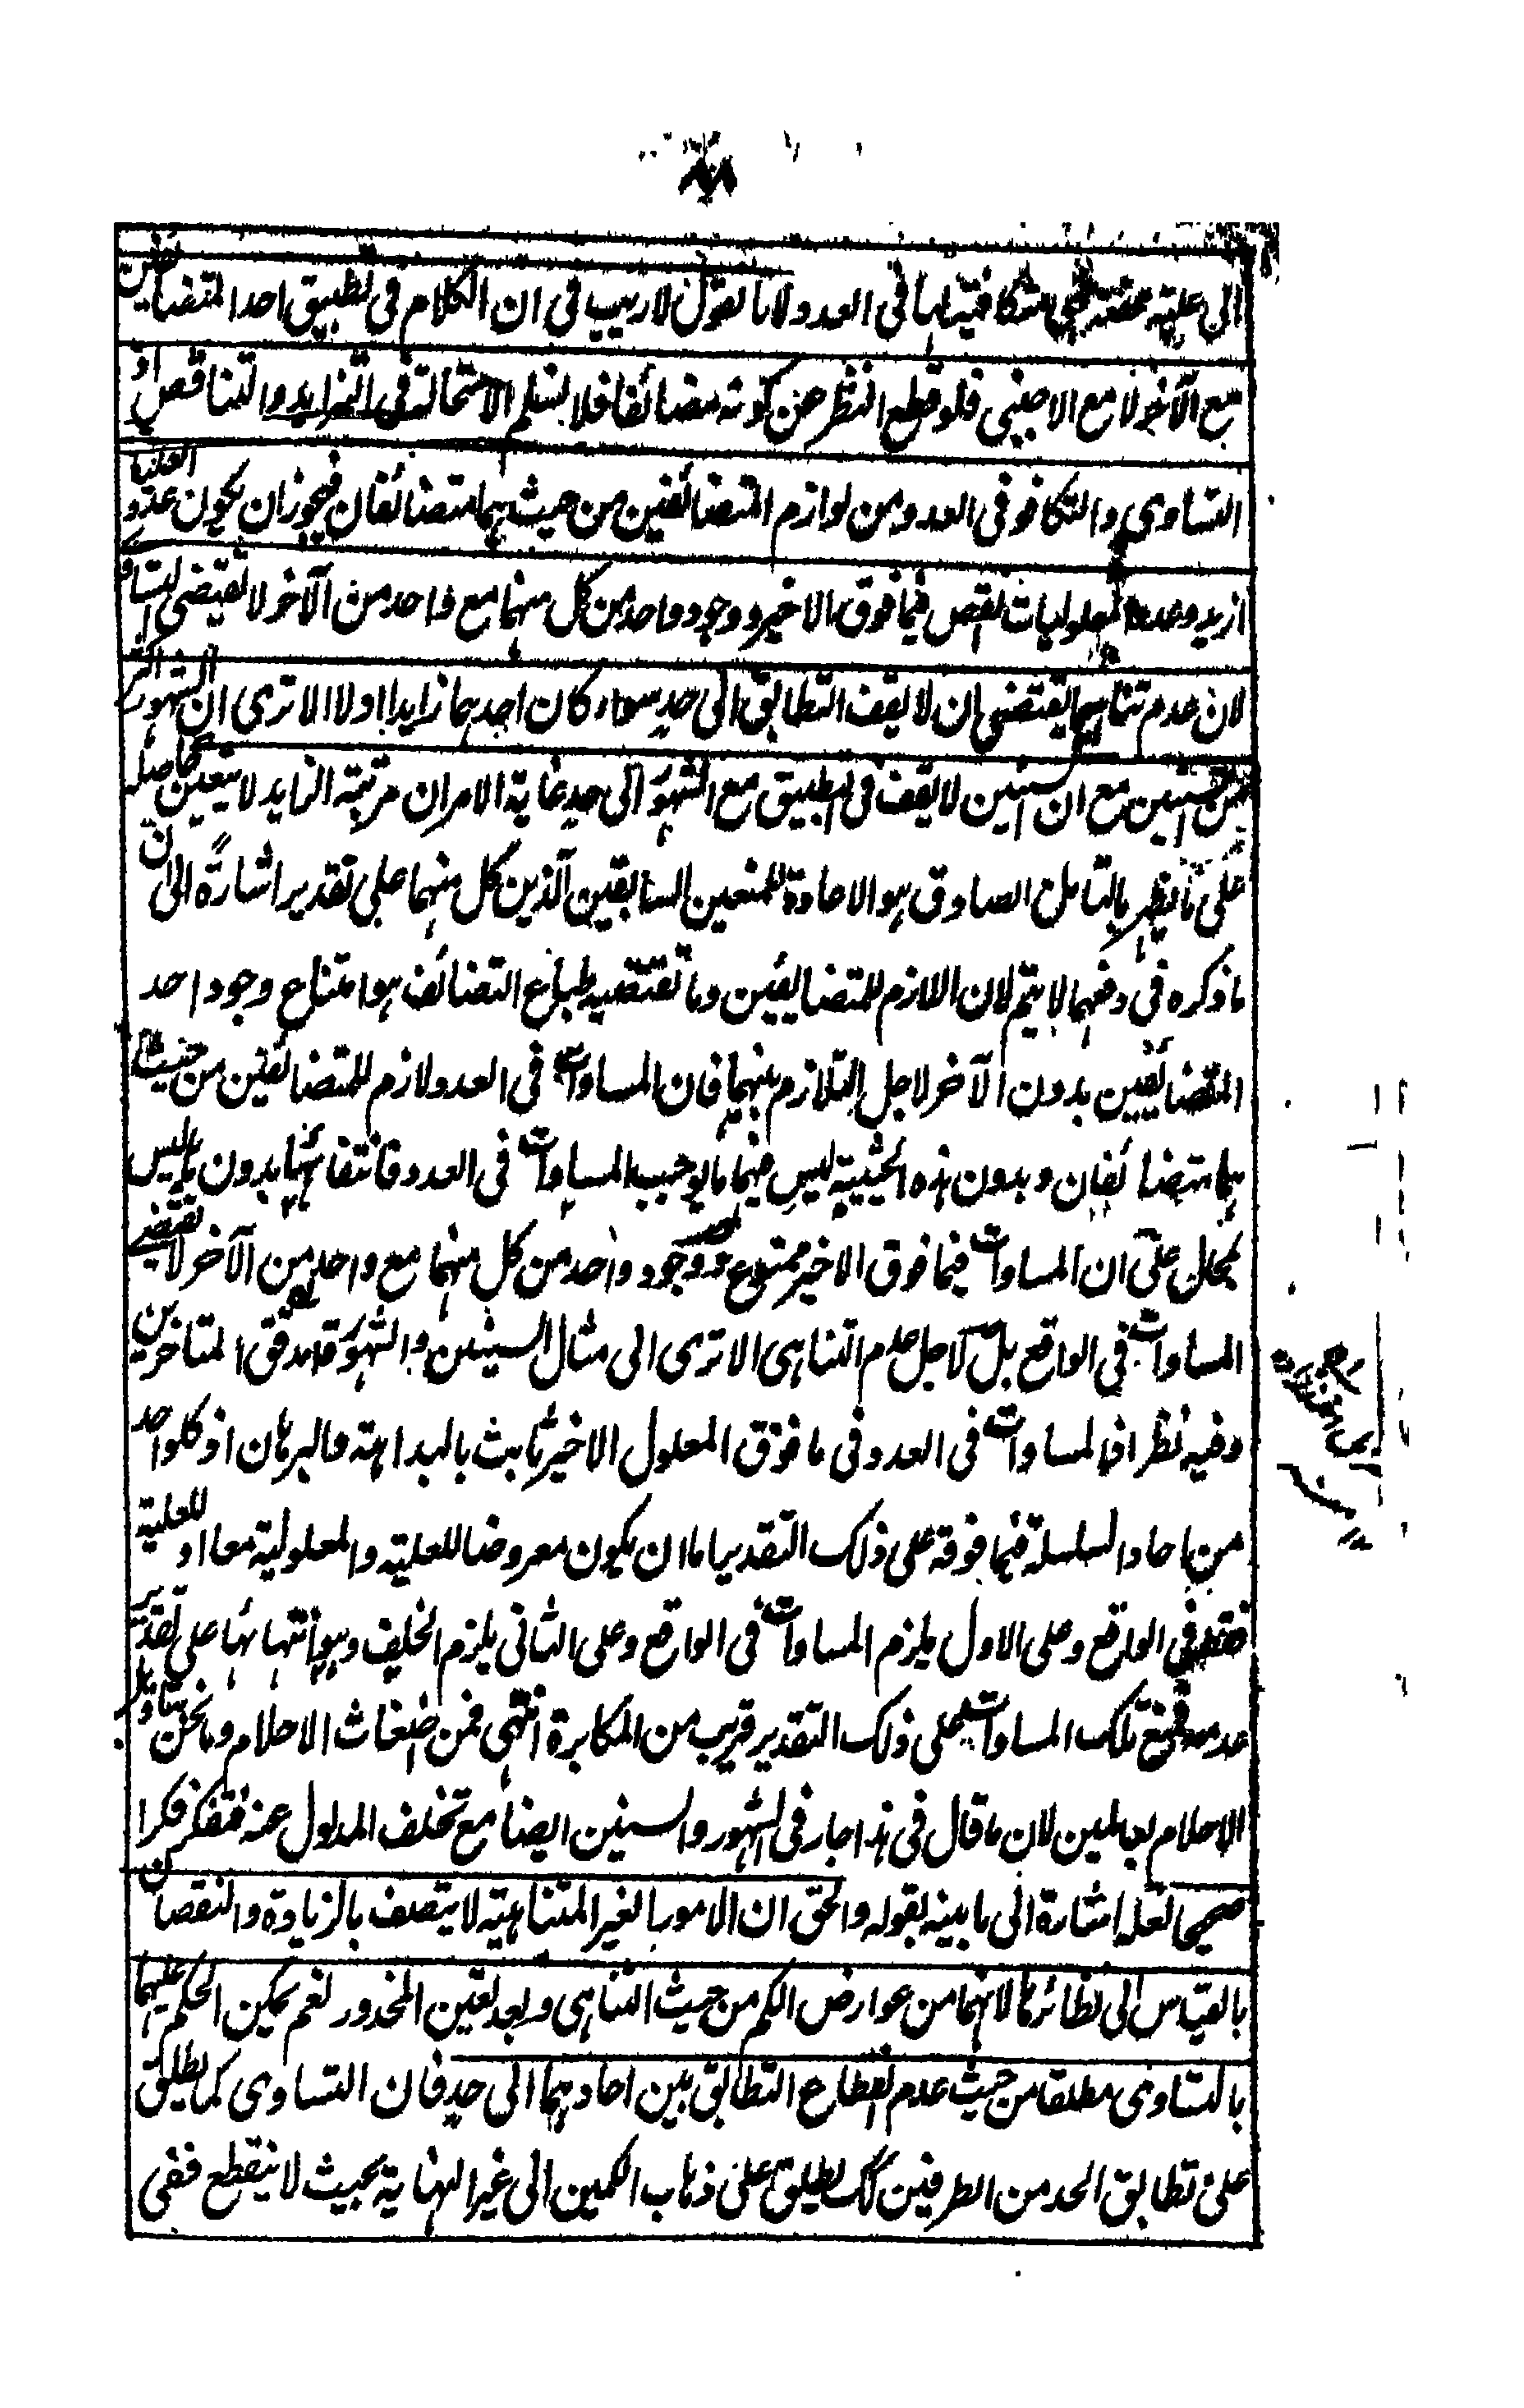 الى علية محضة متكافية لها فى العدد ولانا نقول لا ريب فى ان الكلام فى تطبيق احد المتضائفين
مع الآخر لا مع الاجنبى فلو قطع النظر عن كونه مضائفا فلا نسلم الاستحالة فى التزايد والتناقص اذ
التساوى والتكافو فى العدد من لوازم المتضائفين من حيث هما متضائفان فيجوز ان يكون عدد العليات
ازيد وعدد المعلوليات انقص فيما فوق الاخير ووجود واحد من كل منهما مع واحد من الآخر لا يقتضى التساوى
لان عدم تناهيهما يقتضى ان لا يقف التطابق الى حد سواء كان احدهما زايدا اولا الا ترى ان الشهور اكثر
من السنين مع ان السنين لا يقف فى التطبيق مع الشهور الى حد غاية الامر ان مرتبة الزايد لا يتعين حاصله
على ما يظهر بالتامل الصادق هو الاعادة للمنعين السابقين الذين كل منهما على تقدير اشارة الى ان
ما ذكره فى دفعهما لا يتم لان اللازم للمتضايفين وما تقتضيه طباع التضائف هو امتناع وجود احد
المتضايفين بدون الآخر لاجل التلازم بينهما فان المساوات فى العدد لازم للمتضائفين من حيث
هما متضائفان وبدون هذه الحيثية ليس فيهما ما يوجب المساوات فى العدد فانتفائها بدونها ليس
بمحال على ان المساوات فيما فوق الاخير ممنوع ووجود واحد من كل منهما مع واحد من الآخر لا يقتضى
المساوات فى الواقع بل لاجل عدم التناهى الا ترى الى مثال السنين والشهور قال مدقق المتاخرين
وفيه نظر اذ المساوات فى العدد فى ما فوق المعلول الاخير ثابت بالبداهة والبرهان اذ كل واحد
من احاد السلسلة فيما فوقه على ذلك التقدير اما ان يكون معروضا للعلية والمعلولية معا او للعلية
فقط فى الواقع وعلى الاول يلزم المساوات فى الواقع وعلى الثانى يلزم الخلف وهو انتهائها على تقدير
عدمه فمنع تلك المساوات على ذلك التقدير قريب من المكابرة انتهى فمن اضغاث الاحلام وما نحن بتاويل
الاحلام بعالمين لان ما قال فى هذا جار فى الشهور والسنين ايضا مع تخلف المدلول عنه فتفكر فكرا
صحيحا لعله اشارة الى ما بينه بقوله والحق ان الامور الغير المتناهية لا يتصف بالزيادة والنقصان
بالقياس الى نظائرها لانهما من عوارض الكم من حيث التناهى وبعد تعين المحذور نعم يمكن الحكم عليهما
بالتساوى مطلقا من حيث عدم انقطاع التطابق بين احادهما الى حد فان التساوى كما يطلق
على تطابق الحد من الطرفين كك يطلق على ذهاب الكمين الى غير النهاية بحيث لا ينقطع ففى